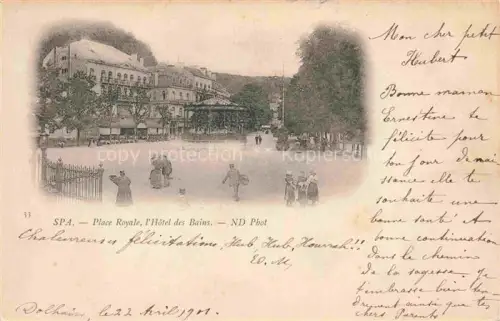 Mon cher petit
Hubert
Bonne maman
Ernestine te
félicite pour
ton jour de nais
sance elle te
souhaite une
bonne santé et
bonne continuation
dans le chemin
de la sagesse. Je
t'embrasse bien ten
drement ainsi que tes
chers Parents
53
SPA. — Place Royale, l'Hôtel des Bains. — ND Phot
Chaleureuses félicitations, Hub, Hub, Hourrah!!
E. M.
Dolhain, le 22 Avril 1901.